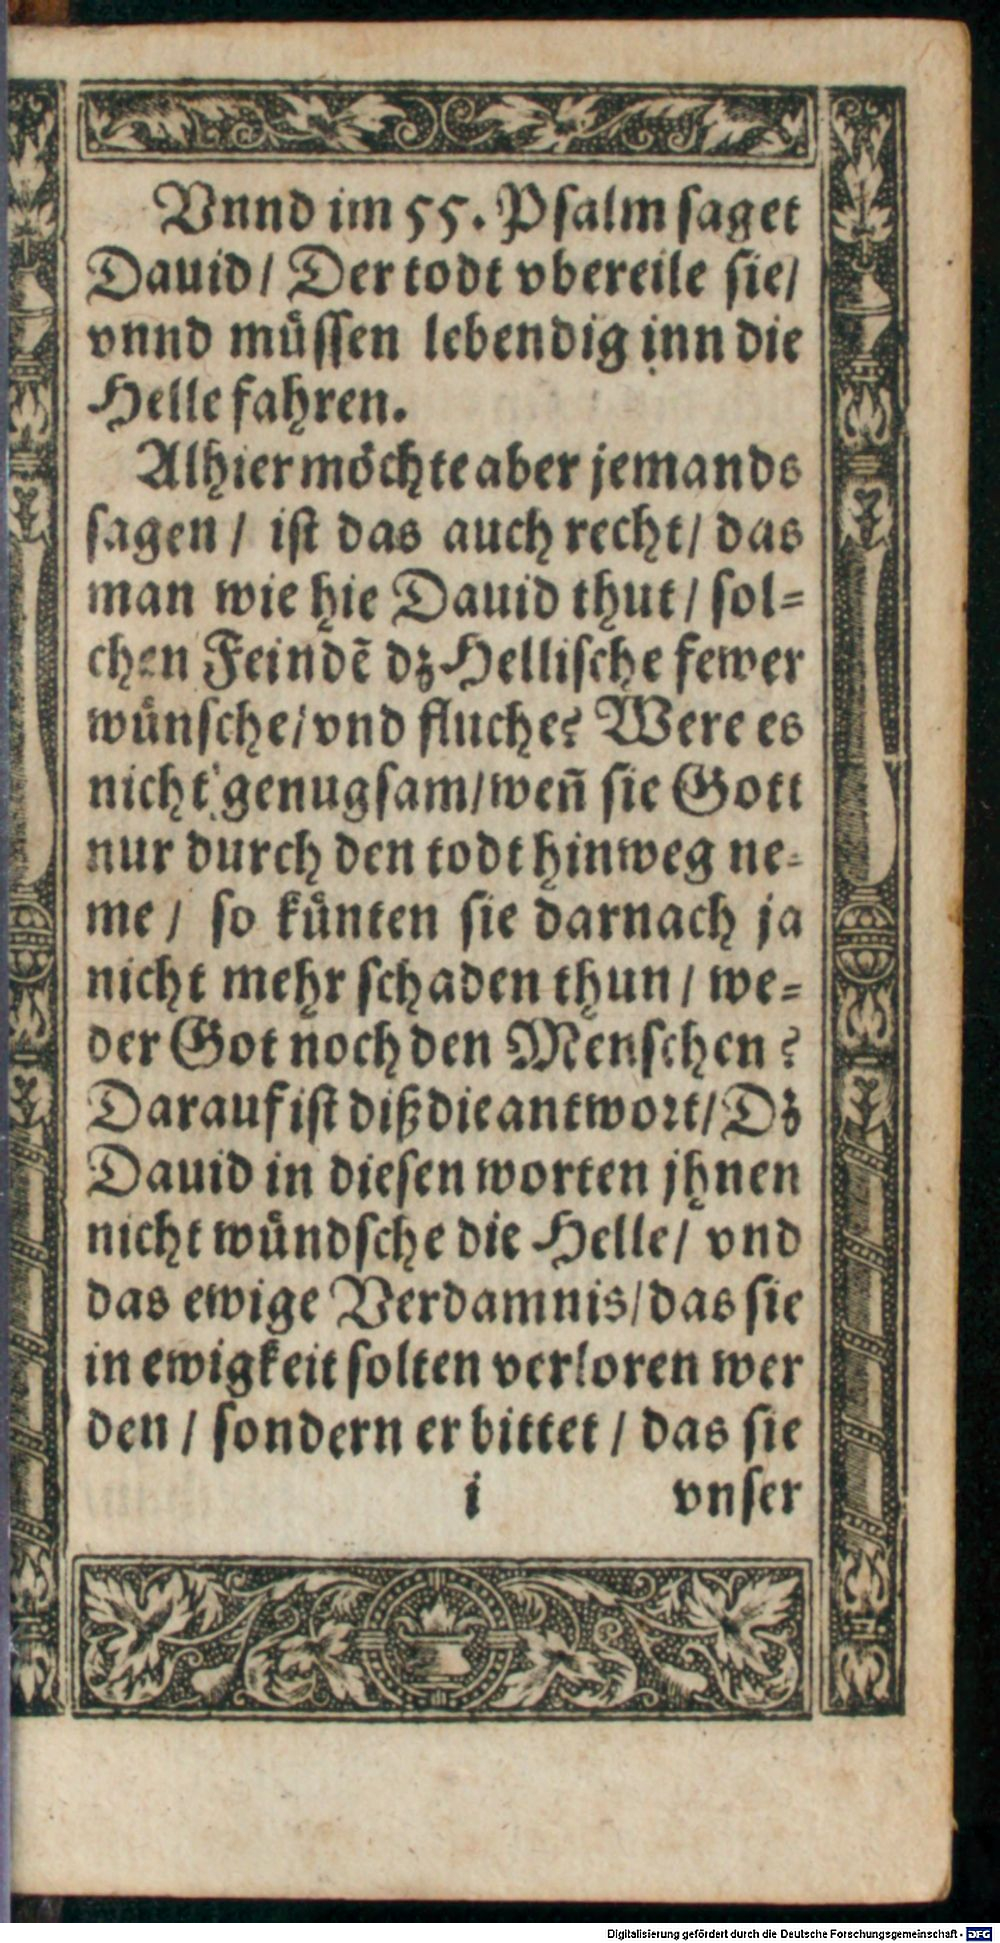 Vnnd im 55. Psalm saget
Dauid/ Der todt vbereile sie/
vnnd muͤssen lebendig inn die
Helle fahren.
Alhier moͤchte aber jemands
sagen/ ist das auch recht/ das
man wie hie Dauid thut/ sol⸗
chen Feindẽ dz Hellische fewer
wuͤnsche/ vnd fluche? Were es
nicht genugsam/ weñ sie Gott
nur durch den todt hinweg ne⸗
me/ so kuͤnten sie darnach ja
nicht mehr schaden thun/ we⸗
der Got noch den Menschen?
Darauf ist diß die antwort/ Dz
Dauid in diesen worten jhnen
nicht wuͤndsche die Helle/ vnd
das ewige Verdamnis/ das sie
in ewigkeit solten verloren wer
den/ sondern er bittet/ das sie
i vnser
Digitalisierung gefördert durch die Deutsche Forschungsgemeinschaft - DFG